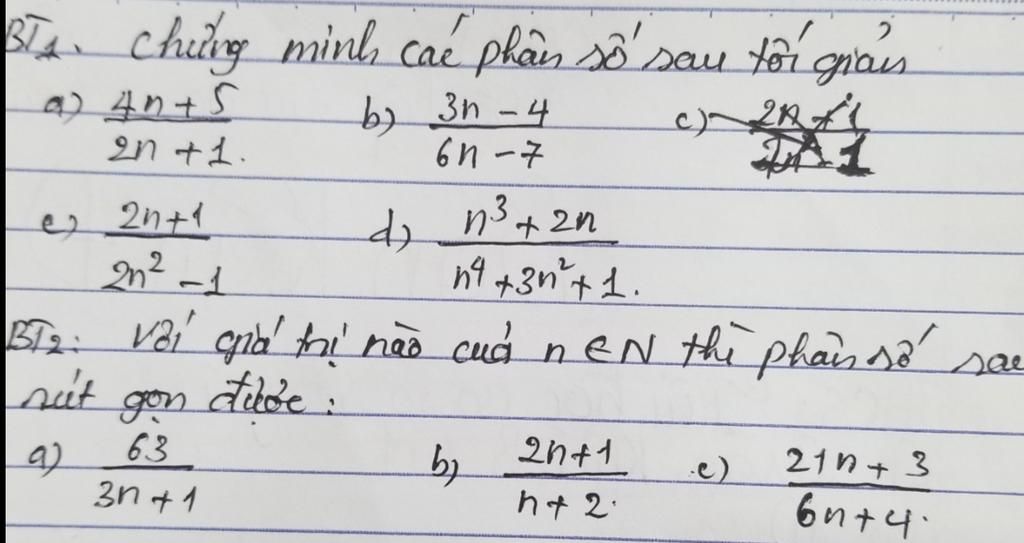 BT1. Chứng minh các phân số sau tối giản
a) (4n + 5)/(2n + 1). b) (3n - 4)/(6n - 7) c)
c) (2n+1)/(2n² - 1) d) (n³ + 2n)/(n⁴ + 3n² + 1).
BT2: Với giá trị nào của n ∈ N thì phân số sau
rút gọn được:
a) 63/(3n + 1) b) (2n+1)/(n + 2). c) (21n + 3)/(6n + 4).